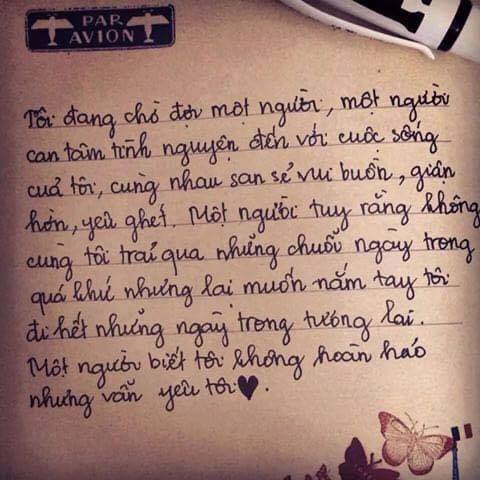 PAR
AVION
Tôi đang chờ đợi một người, một người
can tâm tình nguyện đến với cuộc sống
của tôi, cùng nhau san sẻ vui buồn, giận
hờn, yêu ghét. Một người tuy rằng không
cùng tôi trải qua những chuỗi ngày trong
quá khứ nhưng lại muốn nắm tay tôi
đi hết những ngày trong tương lai.
Một người biết tôi không hoàn hảo
nhưng vẫn yêu tôi♥.